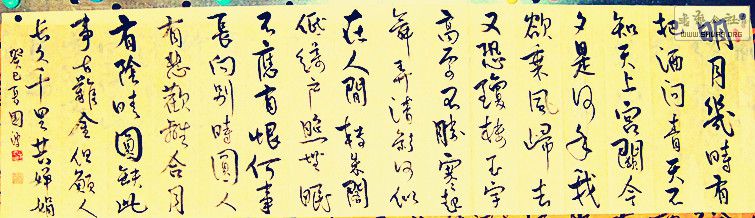 明月幾時有
把酒问青天不
知天上宫闕今
夕是何年我
欲乘風歸去
又恐瓊楼玉宇
高處不勝寒起
舞弄清影何似
在人間转朱閣
低绮户照無眠
不應有恨何事
長向别時圓人
有悲歡離合月
有陰晴圓缺此
事古難全但願人
长久千里共嬋娟
癸巳夏国